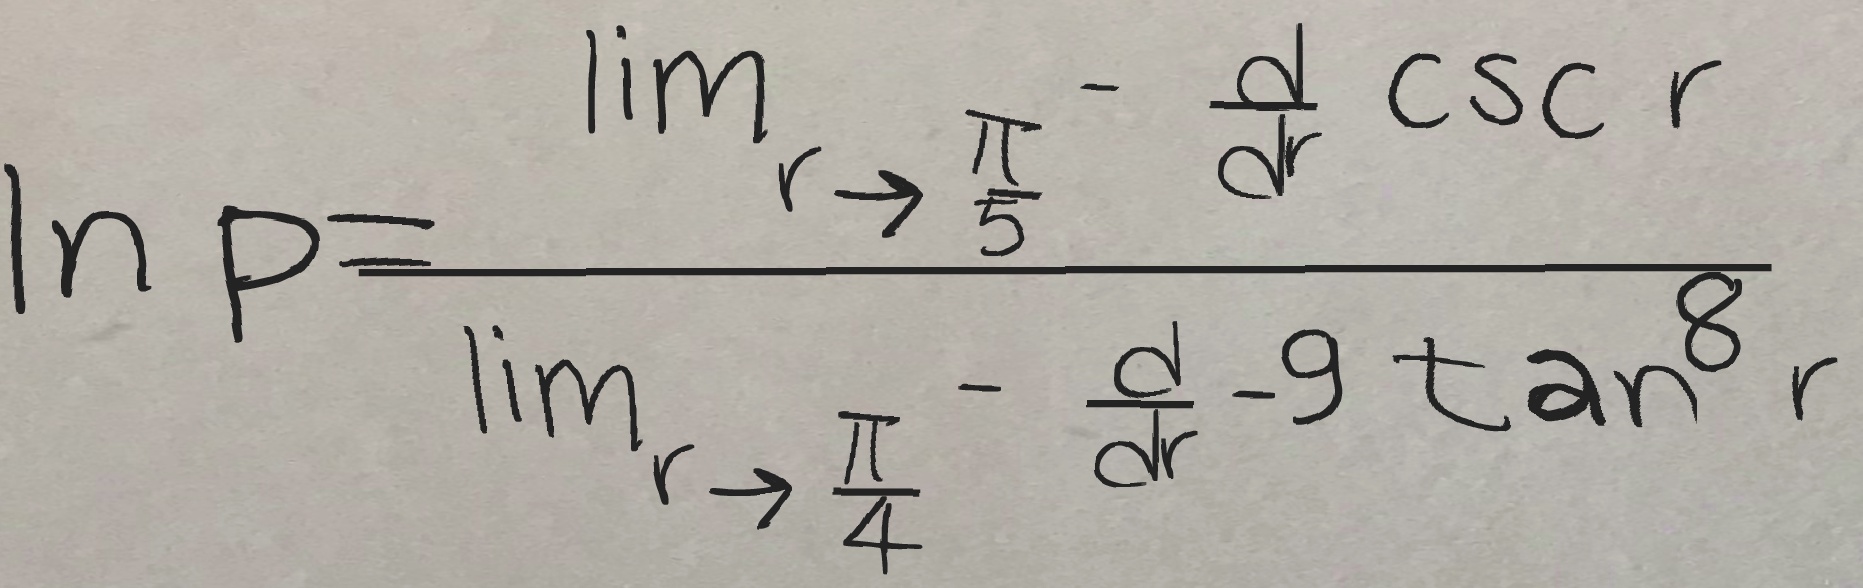 \ln p = \frac{\lim_{r \to \frac{\pi}{5}} - \frac{d}{dr} \csc r}{\lim_{r \to \frac{\pi}{4}} - \frac{d}{dr} -9 \tan^8 r}